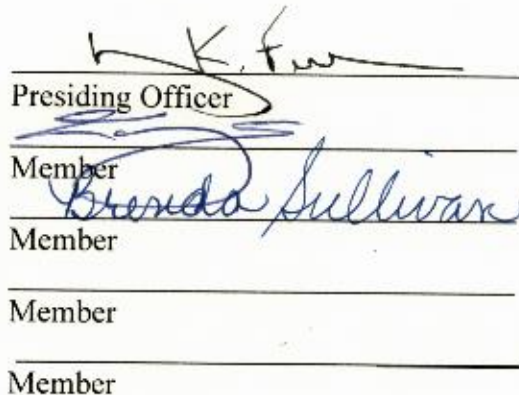 K.
Presiding Officer
Member
Brenda Sullivan
Member
Member
Member